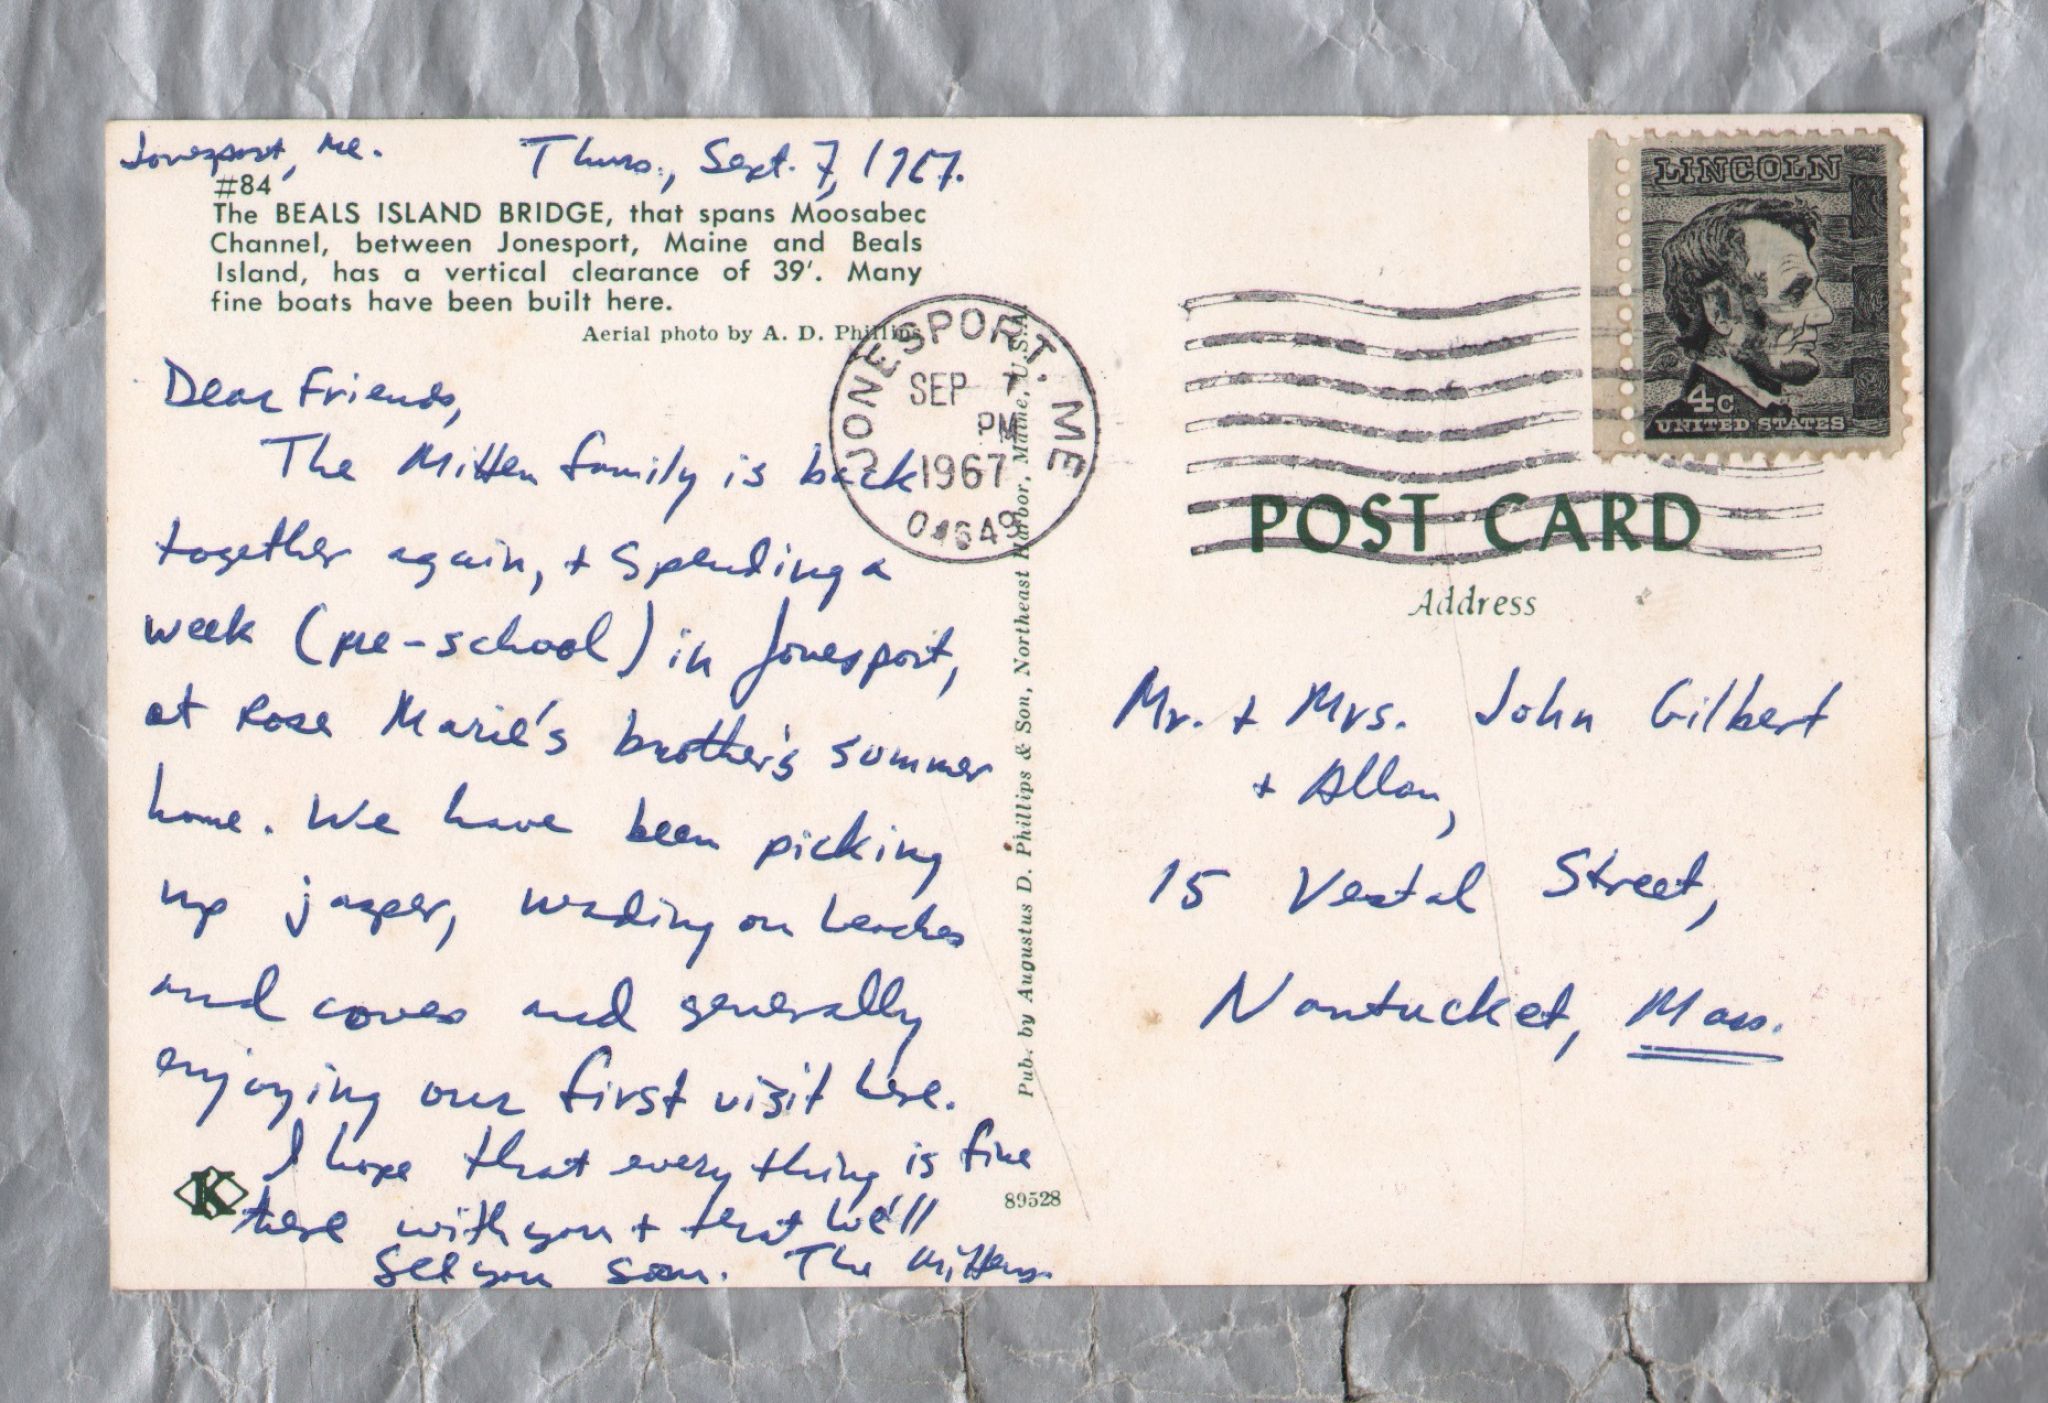 Jonesport, Me. Thurs., Sept. 7, 1967.
#84
The BEALS ISLAND BRIDGE, that spans Moosabec
Channel, between Jonesport, Maine and Beals
Island, has a vertical clearance of 39'. Many
fine boats have been built here.
Aerial photo by A. D. Phillips
Dear Friends,
The Mitten family is back
together again, + spending a
week (pre-school) in Jonesport,
at Rose Marie's brother's summer
home. We have been picking
up jasper, wading on beaches
and coves and generally
enjoying our first visit here.
I hope that everything is fine
there with you + that we'll
see you soon. The Mittens.
K
89528
Pub. by Augustus D. Phillips & Son, Northeast Harbor, Maine, U.S.A.
JONESPORT, ME
SEP 7
PM
1967
04649
LINCOLN
4c
UNITED STATES
POST CARD
Address
Mr. + Mrs. John Gilbert
+ Allan,
15 Vestal Street,
Nantucket, Mass.